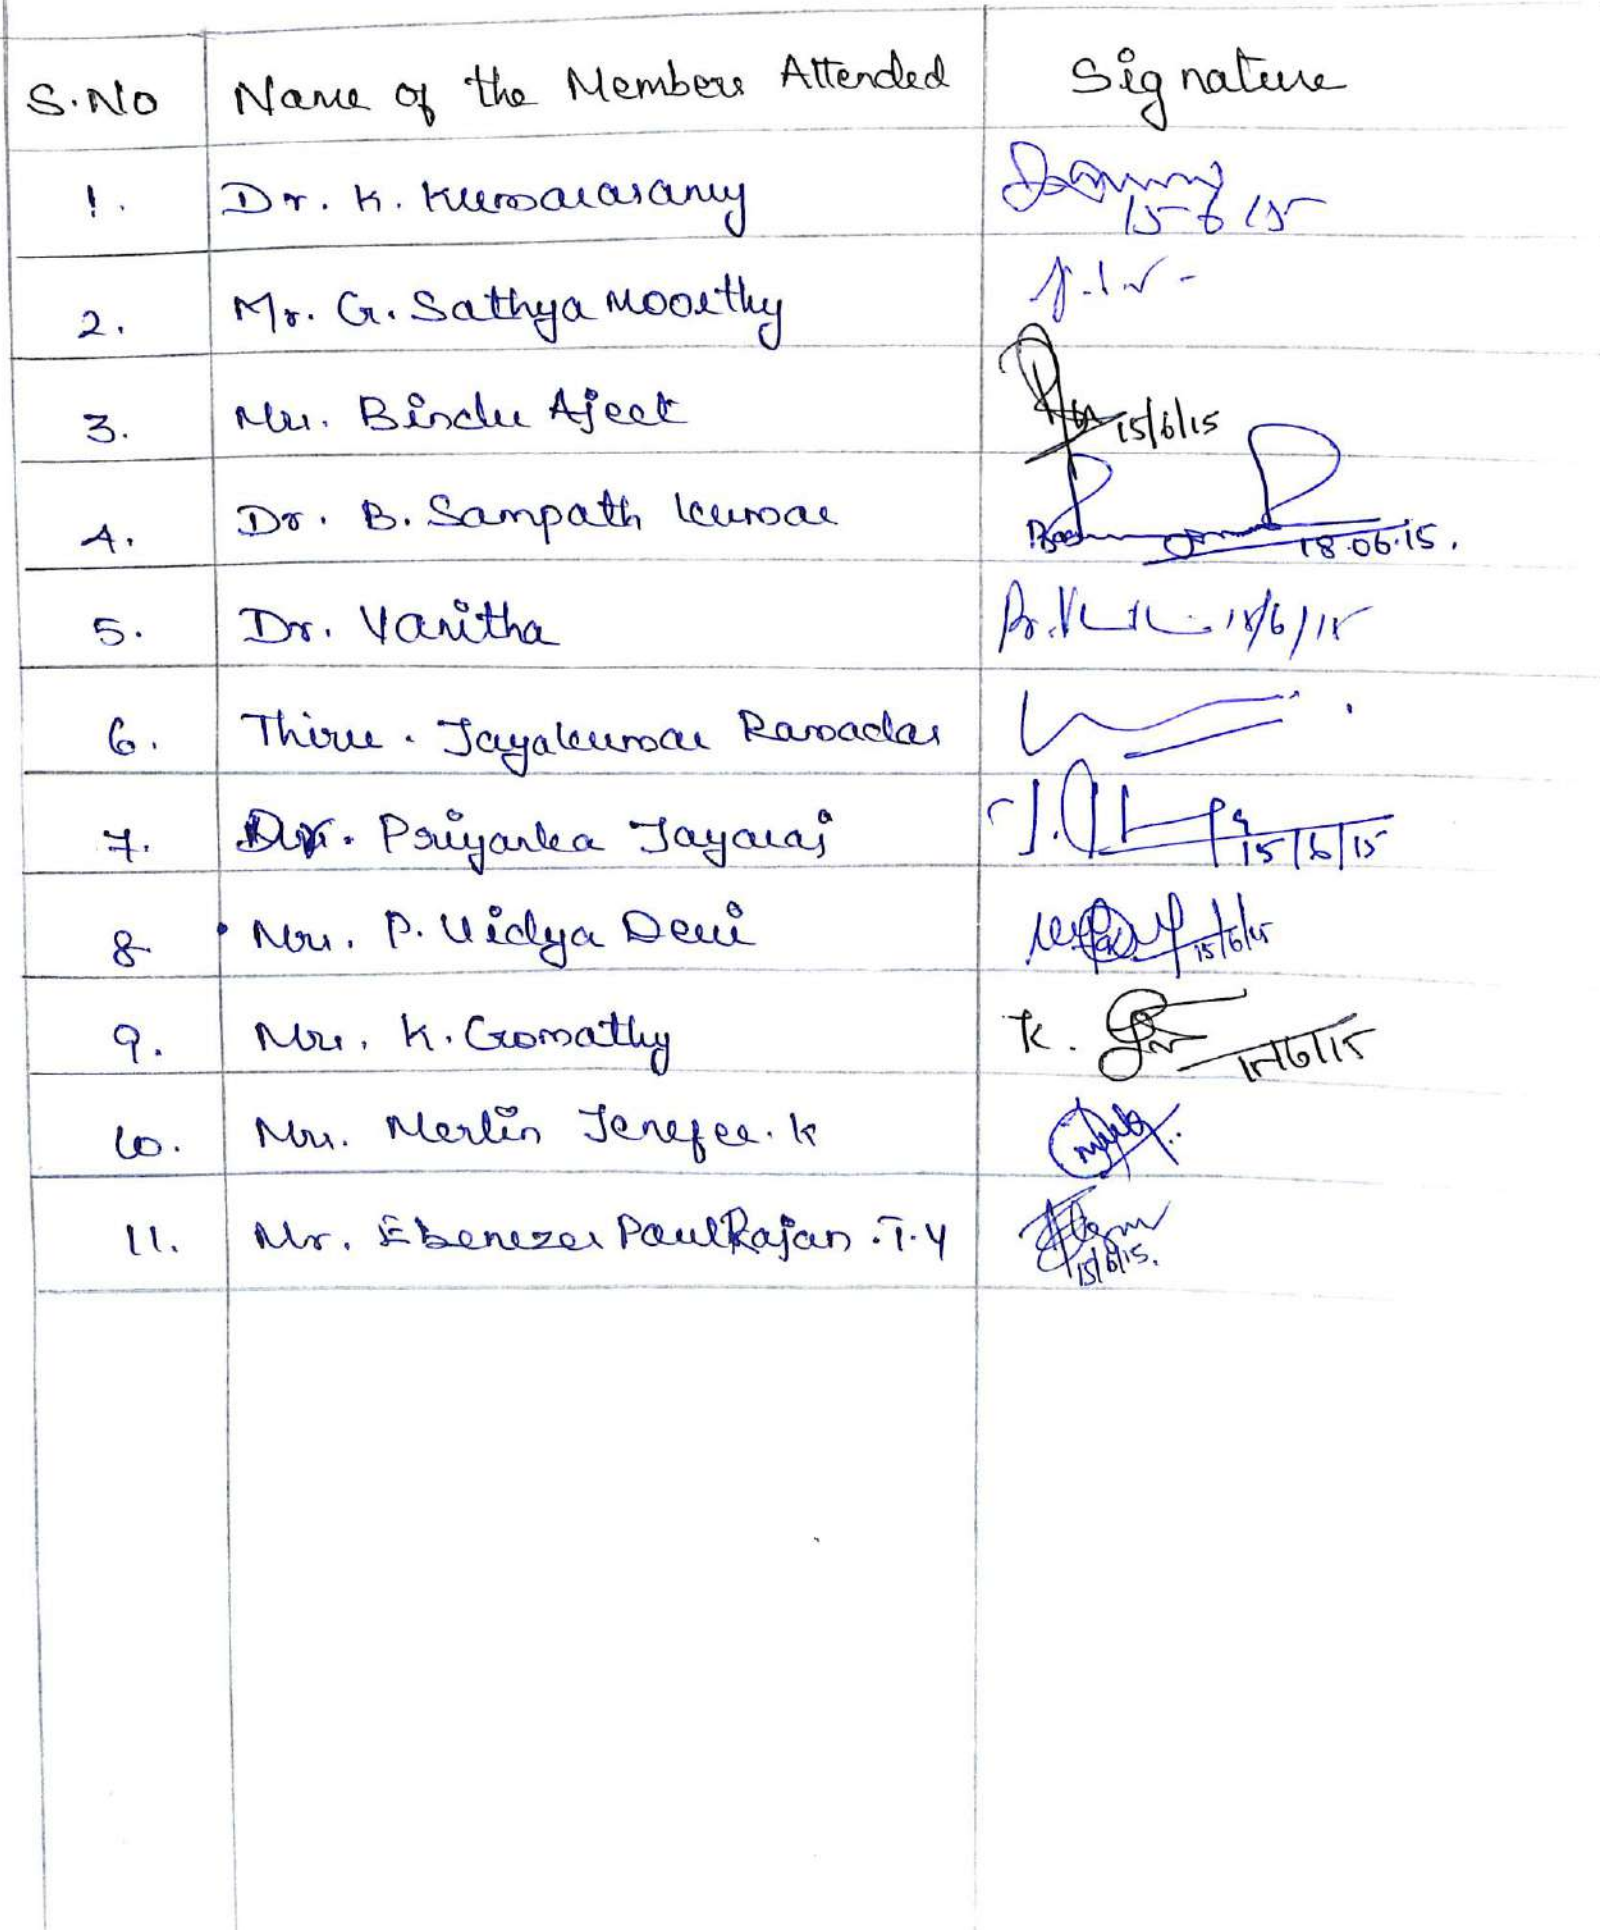 S.No Name of the Members Attended Signature
1. Dr. K. Kumarasamy 15-6-15
2. Mr. G. Sathya Moorthy
3. Mrs. Bindu Ajeet 15/6/15
4. Dr. B. Sampath Kumar 18.06.15.
5. Dr. Vanitha
6. Thiru. Jayakumar Ramadas
7. Dr. Priyanka Jayaraj 15/6/15
8. Mrs. P. Vidya Devi 15/6/15
9. Mrs. K. Gomathy K.
10. Mrs. Merlin Jenefer. K
11. Mr. Ebenezer PaulRajan. T.Y 15/6/15.